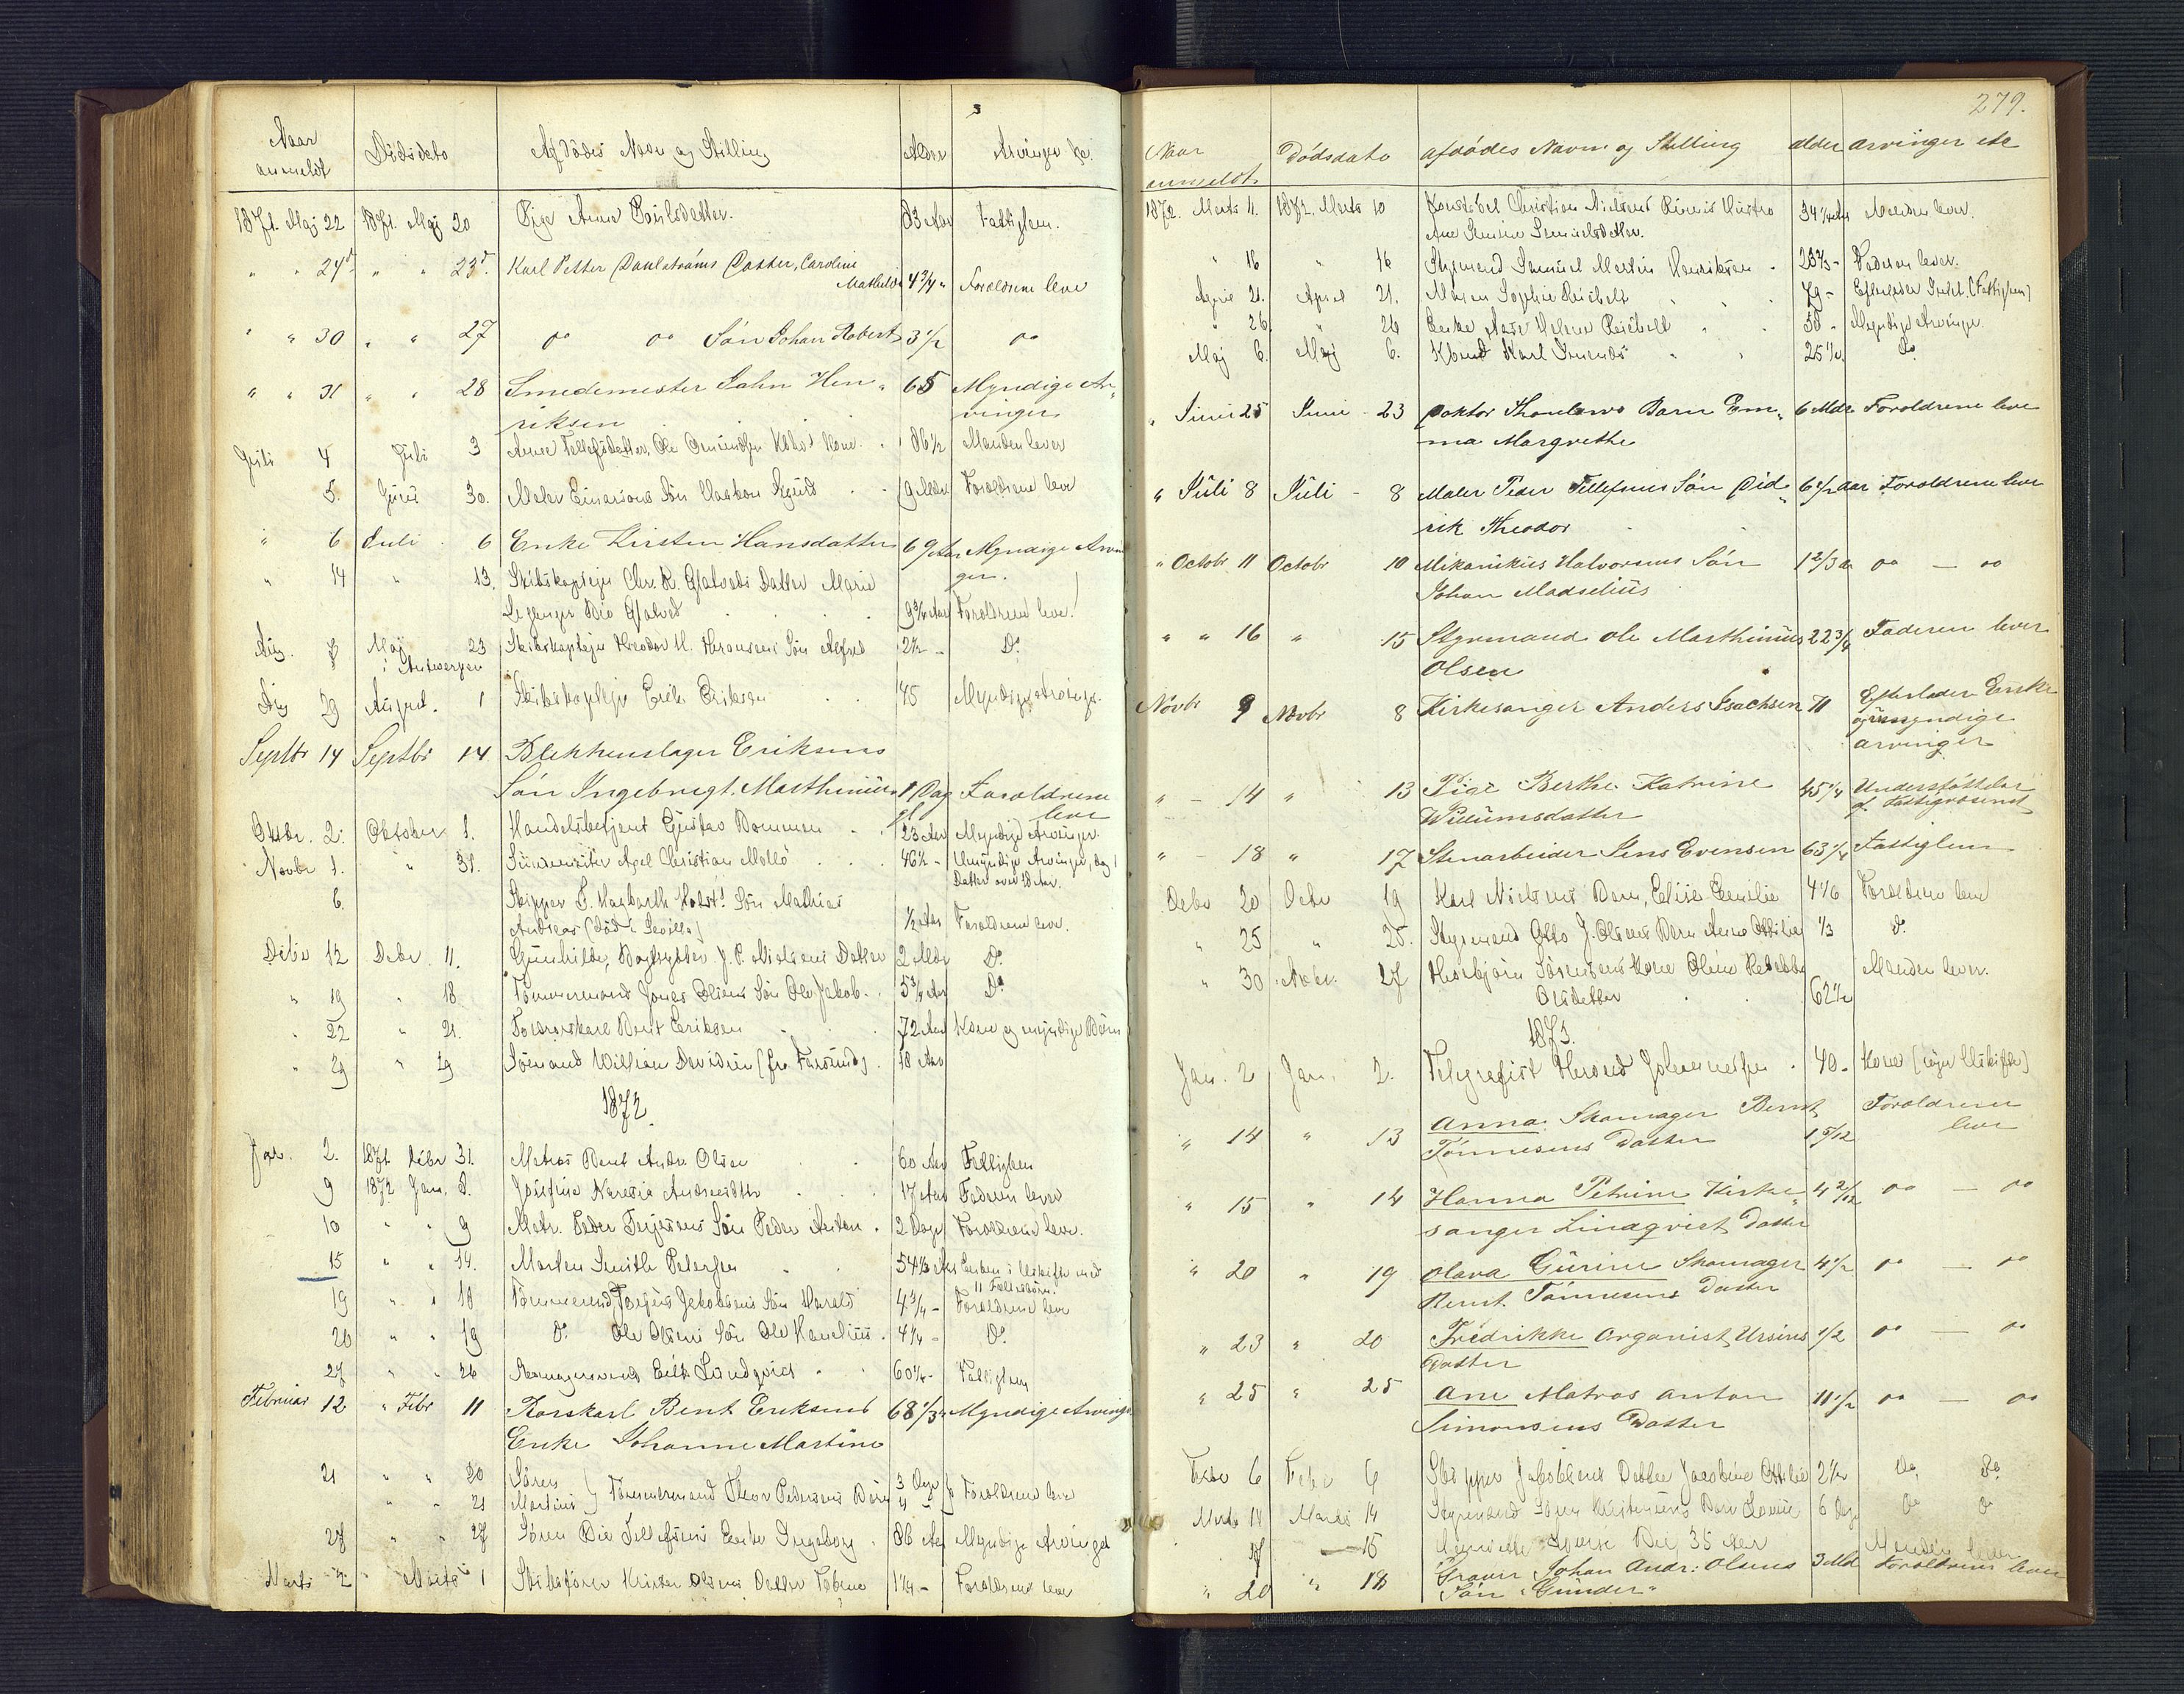 Naar anmeldt Dødsdato Afdødes Navn og Stilling Alder Arvinger &c.
1871. Maj 22 1871. Maj 20 Pige Anne Poulsdatter. 83 Aar Fattiglem.
" " 24de " " 23de Karl Petter Dahlstrøms Datter, Caroline
Mathilde 4 3/4 " Forældrene leve
" " 30 " " 27 do do Søn Johan Robert 3 1/2 do
" " 31 " " 28 Smedemester Jahn Hen- 65 Myndige Ar-
riksen vinger
Juli 4 Juli 3 Anne Tellefsdatter, Ole Kone 86 1/2 Manden lever
5. Juni 30. Maler Einarsens Søn Haakon Sigurd 9 Mdr Forældrene leve
" 6 Juli 6 Enke Kirsten Hansdatter 69 Aar Myndige Arvin
ger.
" 14 " 13. Skibskaptejn Chr. R. Gjalveds Datter Marie
Gjalved 9 3/4 Aar Forældrene leve.
Aug. 8 Maj 23 Skibskaptejn Theodor Søn Alfred 2 1/2 - Do
i Antwerpen
Aug 29 August. 1 Skibskaptejn Erik Eriksen 45 Myndige Arvinger.
Septbr 14 Septbr 14 Blikkenslager Eriksens
Søn Ingebregt Marthinius 1 Dag Forældrene
gl leve
Oktbr. 2. Oktober 1. Handelsbetjent Gustav Bommen 23 Aar Myndige Arvinger.
Novbr 1. " 31. Axel Christian 46 1/2 - Umyndige Arvinger, og 1
Datter over 18 Aar.
6. Skipper Søn Mathias
Andreas (død i Sevilla) 1/2 Aar Forældrene leve.
Debr 12 Debr. 11. Gunhilde, J. P. Nielsens Datter 2 Mdr Do
" 19 " 18. Tømmermand Jonas Olsens Søn Ole Jakob. 5 3/4 Aar Do
" 22 " 21. Berit Eriksen 72 Aar Kone og myndige Børn
" 29 " 29 Sømand William Davidsen (fra Farsund). 18 Aar
1872.
Jan. 2. 1871 Debr 31. Matros Berent Andr. Olsen 60 Aar Fattiglem
9 1872 Jan. 8. Josefine 17 Aar Faderen lever
10 " " 9 Matr. Peder Terjesens Søn Peder Anton. 2 Dage Forældrene leve.
15 " " 14. Morten Smith Petersen 54 1/3 Aar Enken i Uskifte med
11 Fællesbørn.
19 " " 18 Tømmermand Jakobsens Søn Harald 4 3/4 - Forældrene leve
20 " " 19 Do Ole Olsens Søn Ole Kornelius. 4 1/4 - Do
27 " " 26 Erik Lundqvist 60 1/4 - Fattiglem
Februar 12 " Febr 11 Korskarl Bent Eriksens 68 1/3 " Myndige Arvinger
Enke Johanne Martine
21 " " 20 Søren 3 Dage
" " 21 Martinius Tømmermand Thor Pedersens Børn 4 - Forældrene leve
27 " " 27 Søren Die Tellefsens Enke Ingeborg 86 Aar Myndige Arvinger
Marts 2 " Marts 1 Skibsfører Kristen Olsens Datter Tobine 1 1/4 - Forældrene leve
279.
Naar anmeldt. Dødsdato afdødes Navn og Stilling alder arvinger etc
1872. Marts 11. 1872. Marts 10 Konstabel Christian Nielsens Hustru 34 1/4 Aar Manden lever.
Ane Samuelsdatter.
" 16 " 16 Styrmand Samuel Martin Henriksen 28 2/3 - Faderen lever.
April 21. April 21. Maren Sophie Reichelt 79 - (Fattiglem)
" 26 " 26 Enke Helene Reichelt 58 - Myndige Arvinger.
Maj 6. Maj 6. Karl 25 1/2 Do
" Juni 25 Juni - 23 Doktor Thaulows Barn Em- 6 Mdr Forældrene leve
ma Margrethe
" Juli 8 Juli - 8 Maler Peder Tellefsens Søn Did- 6 1/2 aar Forældrene leve
rik Theodor
" Octobr 11 Octobr 10 Mekanikus Halvorsens Søn 1 2/3 a do — do
Johan Madselius
" " 16 " 15 Styrmand Ole Marthinius 22 3/4 Faderen lever
Olsen
Novbr 9 Novbr 8 Kirkesanger Anders Isachsen 71 Efterlader Enke
og umyndige
arvinger
" - 14 " 13 Pige Berthe Katrine 45 1/4 Understøttelse
Willumsdatter af Fattigvæsenet
" - 18 " 17 Stenarbeider Jens Evensen 63 1/4 Fattiglem
Debr 20 Debr 19 Karl Nielsens Barn, Elise Emilie 4 1/6 Forældrene leve
" 25 " 25. Styrmand Otto J. Olsens Barn Anna Ottilie 1/3 do
" 30 27 Sørensens Kone Oline Rebekka Manden lever.
Olsdatter 62 1/2
1873.
Jan. 2 Jan. 2. Telegrafist Johannessen 40 - Kone (i Uskifte)
" 14 " 13 Anna. Skomager Bernt Forældrene
Tønnesens Datter 1 5/12 leve
" 15 " 14 Hanna Petrine Kirke- 4 2/12 do — do
sanger Lindqvist Datter
" 20 " 19 Olava Gurine Skomager 4 1/2 do — do
Bernt. Tønnesens Datter
" 23 " 20 Fredrikke Organist Ursins 1/2 do — do
Datter
" 25 " 25 Ane Matros Anton 11 1/2 do — do
Simonsens Datter
Febr 6 Febr 6 Skipper Jakobsens Datter Jacobine Ottilie 2 1/2 do do
Marts 14 Marts 14 Styrmand Søren Kristensens Barn Lovise 6 Dage do do
17 — 15 35 Aar Manden lever
" 20 " 18 Graver Johan Andr: Olsens 3 Md Forældrene leve
Søn "Gunder"